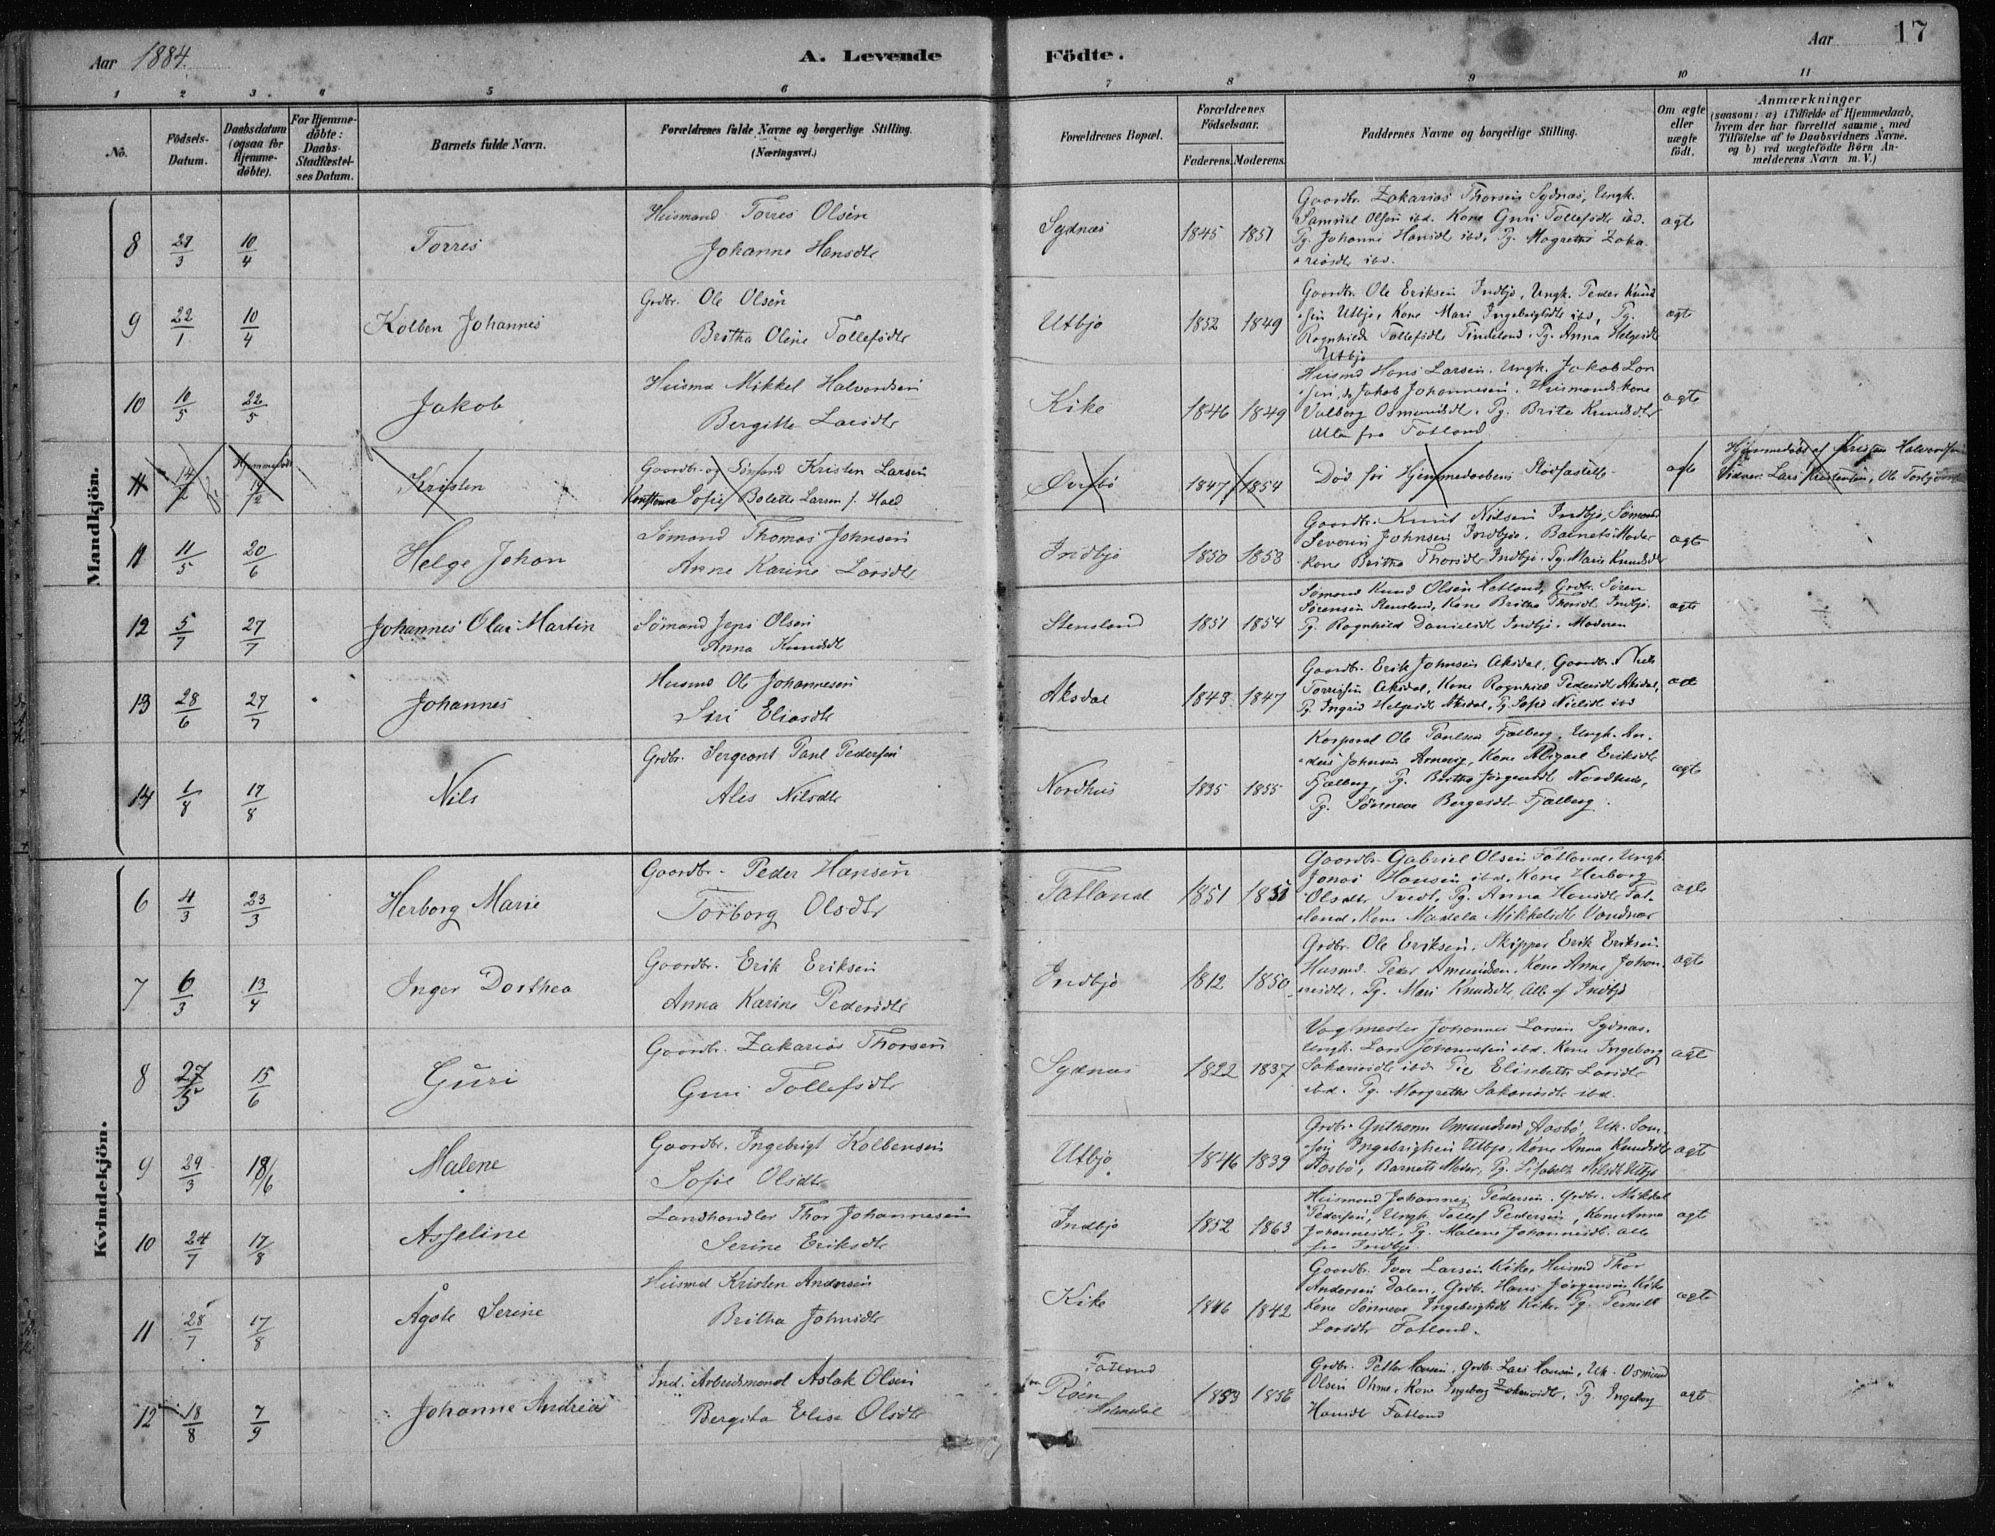 Aar 1884.
A. Levende Födte.
Aar
17
1 2 3. 4 5 6 7 8 9 10 11
No.
Födsels-Datum.
Daabsdatum (ogsaa for Hjemme-döbte).
For Hjemme-döbte: Daabs-Stadfæstel-ses Datum.
Barnets fulde Navn.
Forældrenes fulde Navne og borgerlige Stilling. (Næringsvei.)
Forældrenes Bopæl.
Forældrenes Födselsaar.
Faderens. Moderens.
Faddernes Navne og borgerlige Stilling.
Om ægte eller uægte födt.
Anmærkninger
(saasom: a) i Tilfælde af Hjemmedaab, hvem der har forrettet samme, med Tilföielse af to Daabsvidners Navne. og b) ved uægtefödte Börn An-melderens Navn m. V.)
Mandkjön.
8 10/4 Torres
Husmand Torres Olsen
Johanne Hansdtr
Sydnæs 1845 1851
Gaardbr. Zakarias Thorsen Sydnæs, Ungk.
Samuel Olsen ibd. Kone Guri Tollefsdtr ibd.
Pg. Johanne Hansdt ibd, Pg. Magrethe Zaka
riasdtr ibd.
ægte
9 22/1 10/4 Kolben Johannes
Grdbr. Ole Olsen
Britha Oline Tollefsdtr
Utbjo 1852 1849
Gaardbr. Ole Eriksen Indbjo, Ungk. Peder Knud
sen Utbjo, Kone Mari Ingebrigtsdt ibd, Pg.
Ragnhilde Tollefsdtr Tindeland. Pg. Anna Helgesdt
Utbjo
ægte
10 10/5 22/5 Jakob
Husmd Mikkel Halvardsen
Bergitte Larsdtr
Kike 1846 1849
Husmd Hans Larsen. Ungk. Jakob Lar
sen, Jakob Johannesen. Husmands kone
Valborg Osmundsdt. Pg. Brite Knudsdtr
Alle fra Fatland
ægte
11 Hjemmedøbt Kristen
Gaardbr. og Sømand Kristen Larsen
Sofie Bolette Larsen f. Hald
Øvrebö 1847 1854
Död før Hjemmedaabens Stadfæstelse
ægte
Hjemmedøbt af Kristen Halvorsen
Vidner: Lars Kristensen, Ole
11 11/5 20/6 Helge Johan
Sömand Thomas Johnsen
Anne Karine Larsdtr
Indbjo 1850 1853
Gaardbr. Knud Nilsen Indbjo, Sömand
Severin Johnsen Indbjo. Barnets Moder
Kone Britha Thorsdt Indbjo. Pg. Marie Knudsdtr
ægte
12 5/7 27/7 Johannes Olai Martin
Sömand Jens Olsen
Anna Knudsdt
Stensland 1851 1854
Sömand Knud Olsen Hetland, Grdbr. Sören
Sörensen Stensland, Kone Britha Thorsdt Indbjo.
Pg. Ragnhild Danielsdt Indbjo. Moderen
ægte
13 28/6 27/7 Johannes
Husmd Ole Johannesen
Siri Eliasdtr
Aksdal 1843 1847
Gaardbr. Erik Johnsen Aksdal, Gaardbr. Niels
Torrisen Aksdal, Kone Ragnhild Pedersdtr Aksdal,
Pg. Ingrid Helgesdt Aksdal, Pg Sofie Nielsdt ibd
14 1/8 17/8 Nils
Grdbr. Sergeant Paul Pedersen
Ales Nilsdtr
Nordhus 1835 1855
Korporal Ole Paulsen Fjelberg. Ungk.
Johnsen Arnevig, Kone Abigael Eriksdt
Fjelberg, Pg. Britha Jörgensdt Nordhus,
Pg. Sönneve Bergesdtr Fjelberg.
ægte
Kvindekjön.
6 4/3 23/3 Herborg Marie
Gaardbr. Peder Hansen
Torborg Olsdtr
Fatland 1851
Gaardbr. Gabriel Olsen Fatland, Ungk.
Jonas Hansen ibd. Kone Herborg
Olsdtr Tvedt, Pg. Anna Hansdt Fat-
land. Kone Madela Mikkelsdt
ægte
7 6/3 13/4 Inger Dorthea
Gaardbr. Erik Eriksen
Anna Karine Pedersdtr
Indbjo 1812 1850
Grdbr. Ole Eriksen, Skipper Erik Eriksen.
Husmd. Peder Amundsen. Kone Anne Johan
nesdt. Pg. Mari Knudsdtr, alle af Indbjo
ægte
8 27/5 15/6 Guri
Gaardbr. Zakarias Thorsen
Guri Tollefsdtr
Sydnæs 1822 1837
Johannes Larsen Sydnæs.
Ungk. Lars Johannesen ibd. Kone Ingeborg
Sakariasdt ibd. Pie Elisabeth Larsdtr
ibd. Pg. Margrethe Sakariasdt ibd.
ægte
9 29/3 18/6 Malene
Gaardbr. Ingebrigt Kolbensen
Sofie Olsdtr
Utbjo 1846 1839
Grdbr Guthorm Omundsen Aasbö, Uk. Sam-
sen Ingebrigtsen Utbjo, Kone Anna Knudsdtr
Aasbö, Barnets Moder, Pg. Lisabeth Nilsdt Utbjo
ægte
10 24/7 17/8 Asseline
Landhandler Thor Johannesen
Serine Eriksdtr
Indbjo 1852 1863
Husmand Johannes Pedersen. Grdbr. Mikkel
Pedersen, Ungk. Tollef Pedersen, Kone Anna
Johannesdt. Pg. Malene Johannesdt. alle
fra Indbjo.
ægt
11 28/7 17/8 Ågote Serine
Husmd Kristen Andersen
Britha Johnsdtr
Kike 1842
Gaardbr. Iver Larsen Kike, Husmd Thor
Andersen Dalen, Grdbr. Hans Jörgensen Kike
Kone Sönneve Ingebrigtsdt Kike. Pg. Pernille
Larsdtr Fatland.
ægte
12 18/8 7/9 Johanne Andrea
Ind. Arbeidsmand Aslak Olsen
Bergita Elise Olsdtr
Fatland
1853 1856
Grdbr. Petter Hansen, Grdbr. Lars Hansen, Uk. Osmund
Olsen Ohme, Kone Ingeborg Zakariasdt, Pg. Ingeborg
Hansdt Fatland
ægt